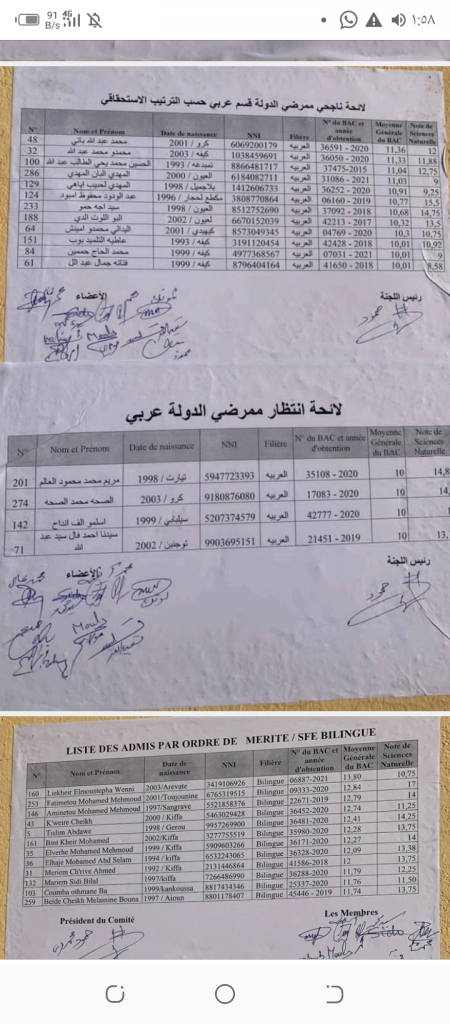 91 B/s 4G ١:٥٨
لائحة ناجحي ممرضي الدولة قسم عربي حسب الترتيب الاستحقاقي
N° Nom et Prénom Date de naissance NNI Filière N° du BAC et année d'obtention Moyenne Générale du BAC Note de Sciences Naturelle
48 محمد عبد الله باني كرو / 2001 6069200179 العربيه 36591 - 2020 11,36 12
32 محمدو محمد عبد الله كيفه / 2003 1038459691 العربيه 36050 - 2020 11,33 11,88
100 الحسين محمد يحي الطالب عبد الله / 1993 8866481717 العربيه 37475-2015 11,04 12,75
286 المهدي البان المهدي العيون / 2000 6184082711 العربيه 31086 - 2021 11,03 9
129 المهدي لحبيب اياهي / 1998 1412606733 العربيه 36252 - 2020 10,91 9,25
124 عبد الودود محفوظ امبود مكطع لحجار / 1996 3808770864 العربيه 06160 - 2019 10,77 15,5
233 سيد احه حمو العيون / 1998 8512752690 العربيه 37092 - 2018 10,68 14,75
188 البو اللوت الدي لعيون / 2002 6670152039 العربيه 42213 - 2017 10,32 13,5
64 البدالي محمدو امينتش / 2001 8573049345 العربيه 04769 - 2020 10,3 10,75
151 عاطيه التلميد بوب كيفه / 1993 3191120454 العربيه 42428 - 2018 10,01 10,92
84 محمد الحاج حمين كيفه / 1999 4977368567 العربيه 07031 - 2021 10,01 9
61 فاته جمال عبد الل كيفه / 1999 8796404164 العربيه 41650 - 2018 10,01 8,58
رئيس اللجنة الأعضاء
لائحة انتظار ممرضي الدولة عربي
N° Nom et Prénom Date de naissance NNI Filière N° du BAC et année d'obtention Moyenne Générale du BAC Note de Sciences Naturelle
201 مريم محمد محمود العالم تيارت / 1998 5947723393 العربيه 35108 - 2020 10 14,8
274 الصحه محمد الصحه كرو / 2003 9180876080 العربيه 17083 - 2020 10 14,
142 اسلمو الف انداح سيليبابي / 1999 5207374579 العربيه 42777 - 2020 10
71 سيدنا احمد فال سيد عبد الله توجنين / 2002 9903695151 العربيه 21451 - 2019 10 13,
رئيس اللجنة الأعضاء
LISTE DES ADMIS PAR ORDRE DE MERITE / SFE BILINGUE
N° Nom et Prénom Date de naissance NNI Filière N° du BAC et année d'obtention Moyenne Générale du BAC Note de Sciences Naturelle
160 Liekheir Elmoustepha Wenni 2003/Arevate 3419106926 Bilingue 06887-2021 13,80 10,75
253 Fatimetou Mohamed Mehmoud 2001/Toujounine 6765319515 Bilingue 09333-2020 12,84 17
146 Aminetou Mohamed Mehmoud 1997/Sangrave 5521858376 Bilingue 22671-2019 12,79 14
43 K'weire Cheikh 2000 / Kiffa 5463029428 Bilingue 36452-2020 12,74 11,25
5 Tislim Abdawe 1998 / Gerou 9957269900 Bilingue 36481-2020 12,41 14,25
161 Bint Kheir Mohamed 2002/Kiffa 3277755519 Bilingue 35980-2020 12,28 13,75
35 Elverhe Mohamed Mehmoud 1999 / Kiffa 5909603266 Bilingue 36171-2020 12,27 14
46 Elhaje Mohamed Abd Selam 1994 / kiffa 6532243065 Bilingue 36328-2020 12,09 13,38
31 Meriem Ch'rive Ahmed 1992 / Kiffa 2131446864 Bilingue 41586-2018 12 13,75
132 Mariem Sidi Bilal 1997/kiffa 7266486990 Bilingue 36288-2020 11,79 12,25
103 Coumba othmane Ba 1999/kankoussa 8817434346 Bilingue 25337-2020 11,76 11,50
259 Beide Cheikh Melainine Bouna 1997 / Aioun 8801178407 Bilingue 45446 - 2019 11,74 13,75
Président du Comité Les Membres